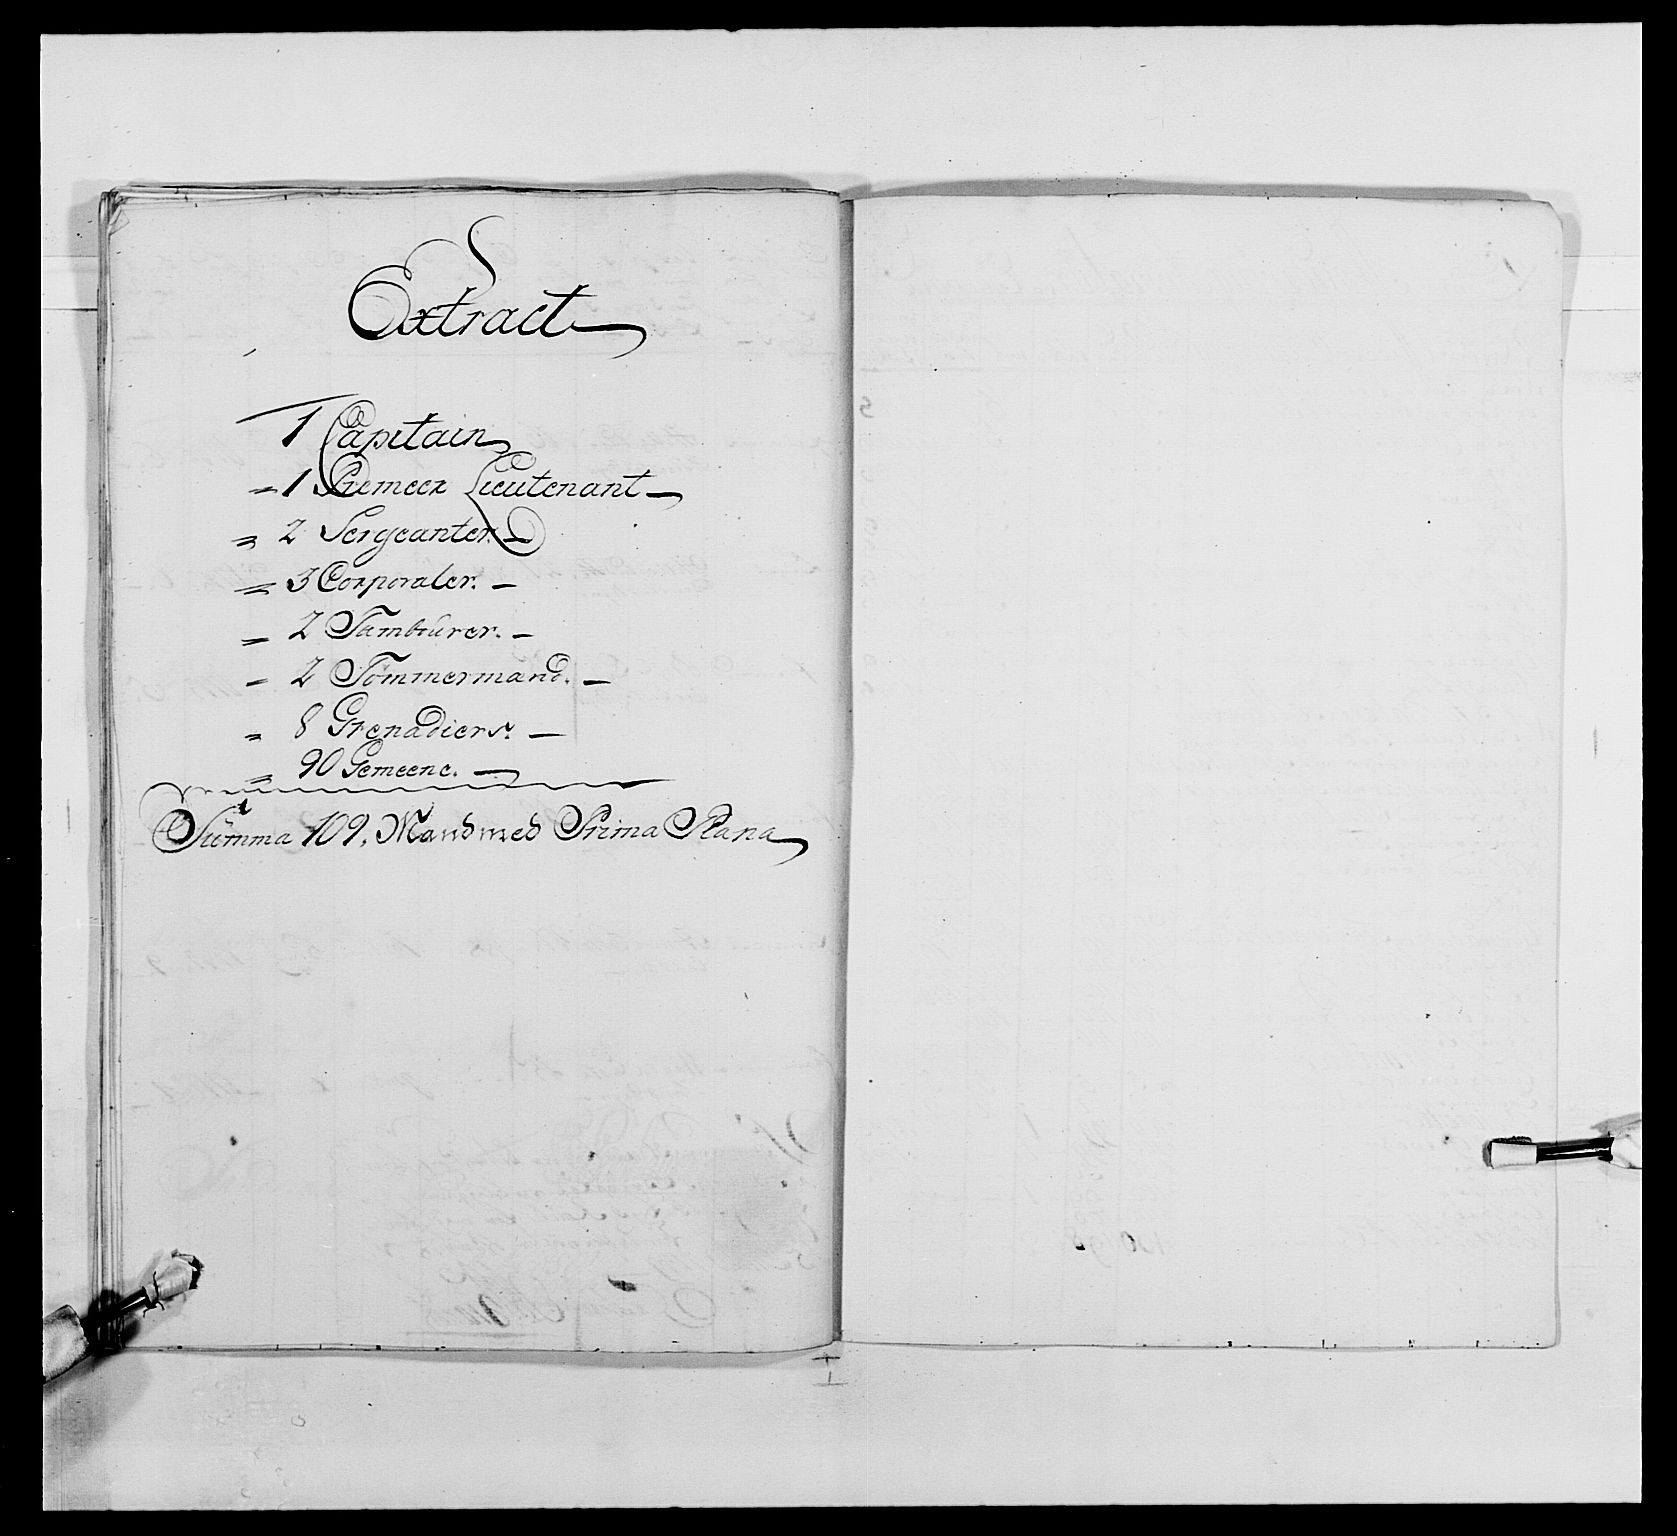 Extract
1 Capitain
" 1 Premeer Lieutenant
" 2 Sergeanter.
" 3 Corporaler.
" 2 Tambúrer.
" 2 Tömmermænd.
" 8 Grenadiers.
" 90 Gemeene.
Súmma 109. Mand med Prima Plana